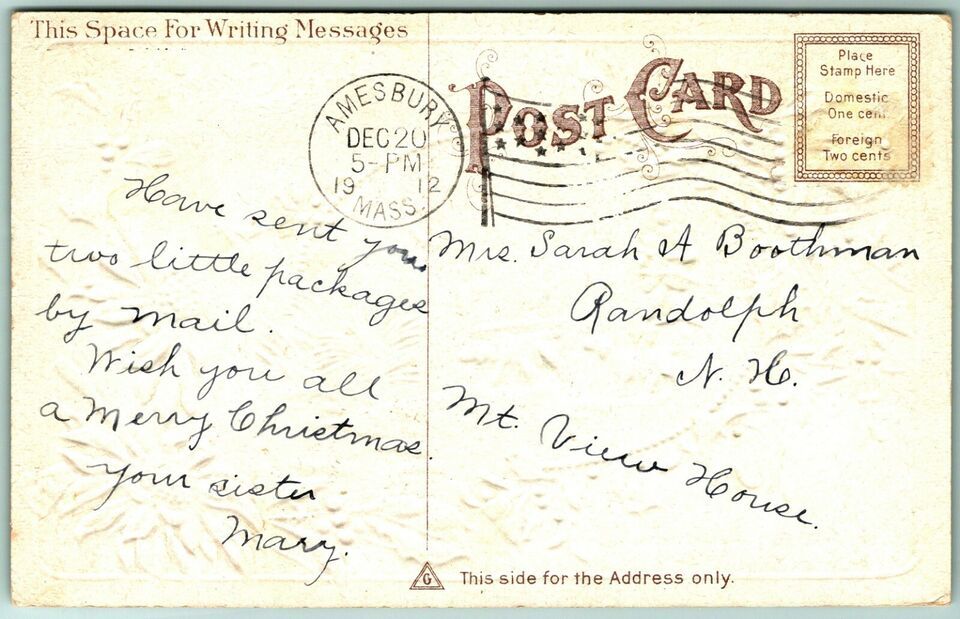 This Space For Writing Messages
POST CARD
Place
Stamp Here
Domestic
One cent
Foreign
Two cents
AMESBURY
DEC 20
5-PM
19 12
MASS.
Have sent you
two little packages
by mail.
Wish you all
a Merry Christmas.
your sister
Mary.
Mrs. Sarah A Boothman
Randolph
N. H.
Mt. View House.
G
This side for the Address only.